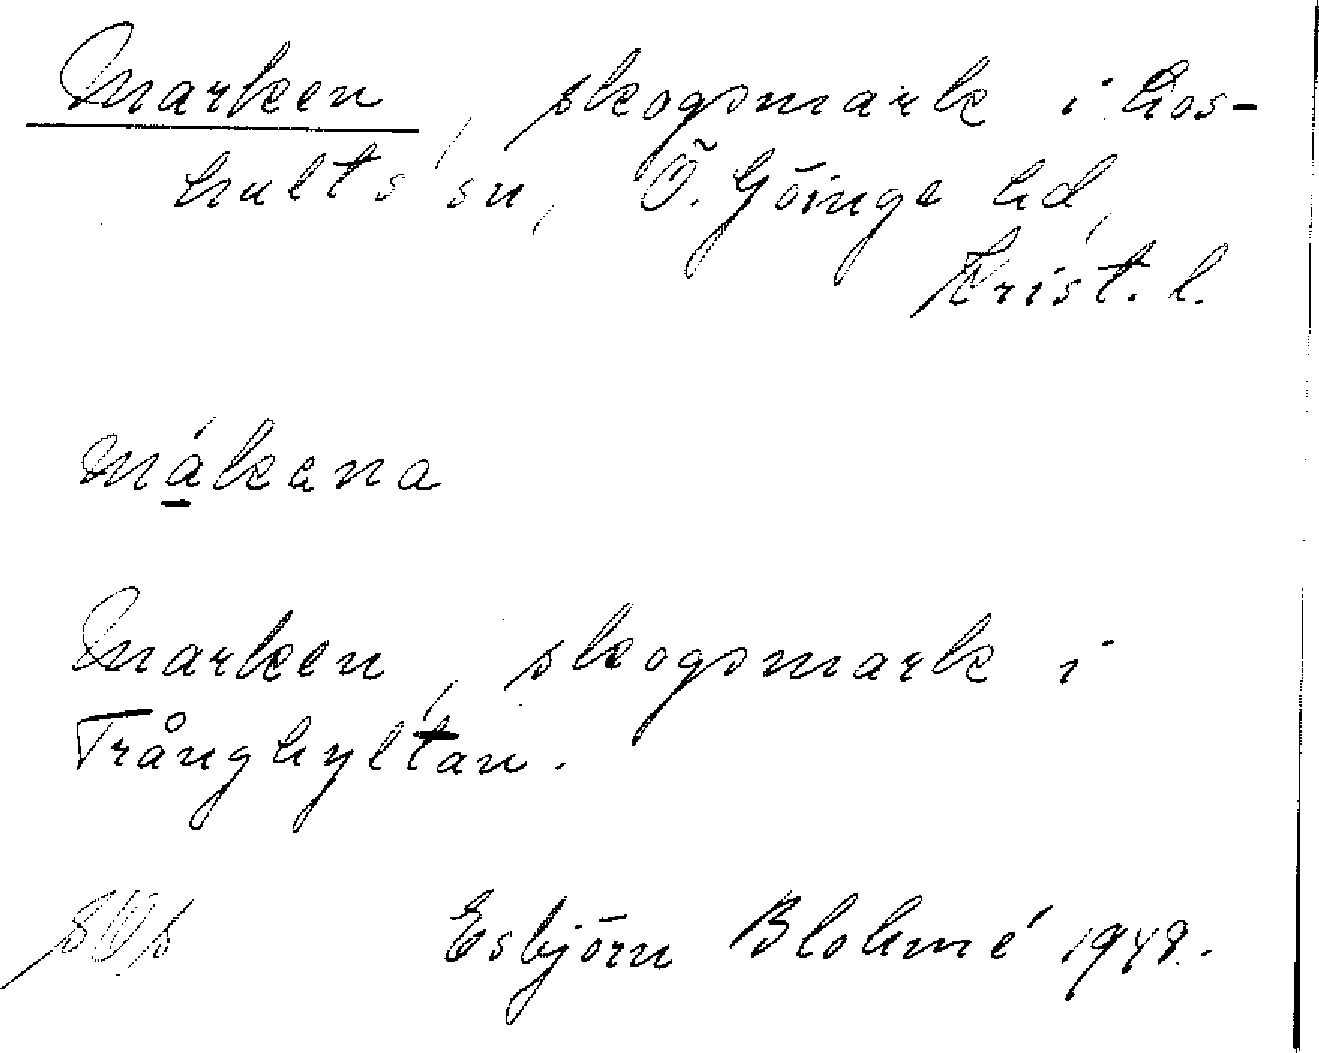 Marken, skogsmark i Los-
hults sn, Ö. Göinge hd,
Krist. l.
mákana
Marken, skogsmark i
Trånghyltan.
Esbjörn Blohmé 1948.